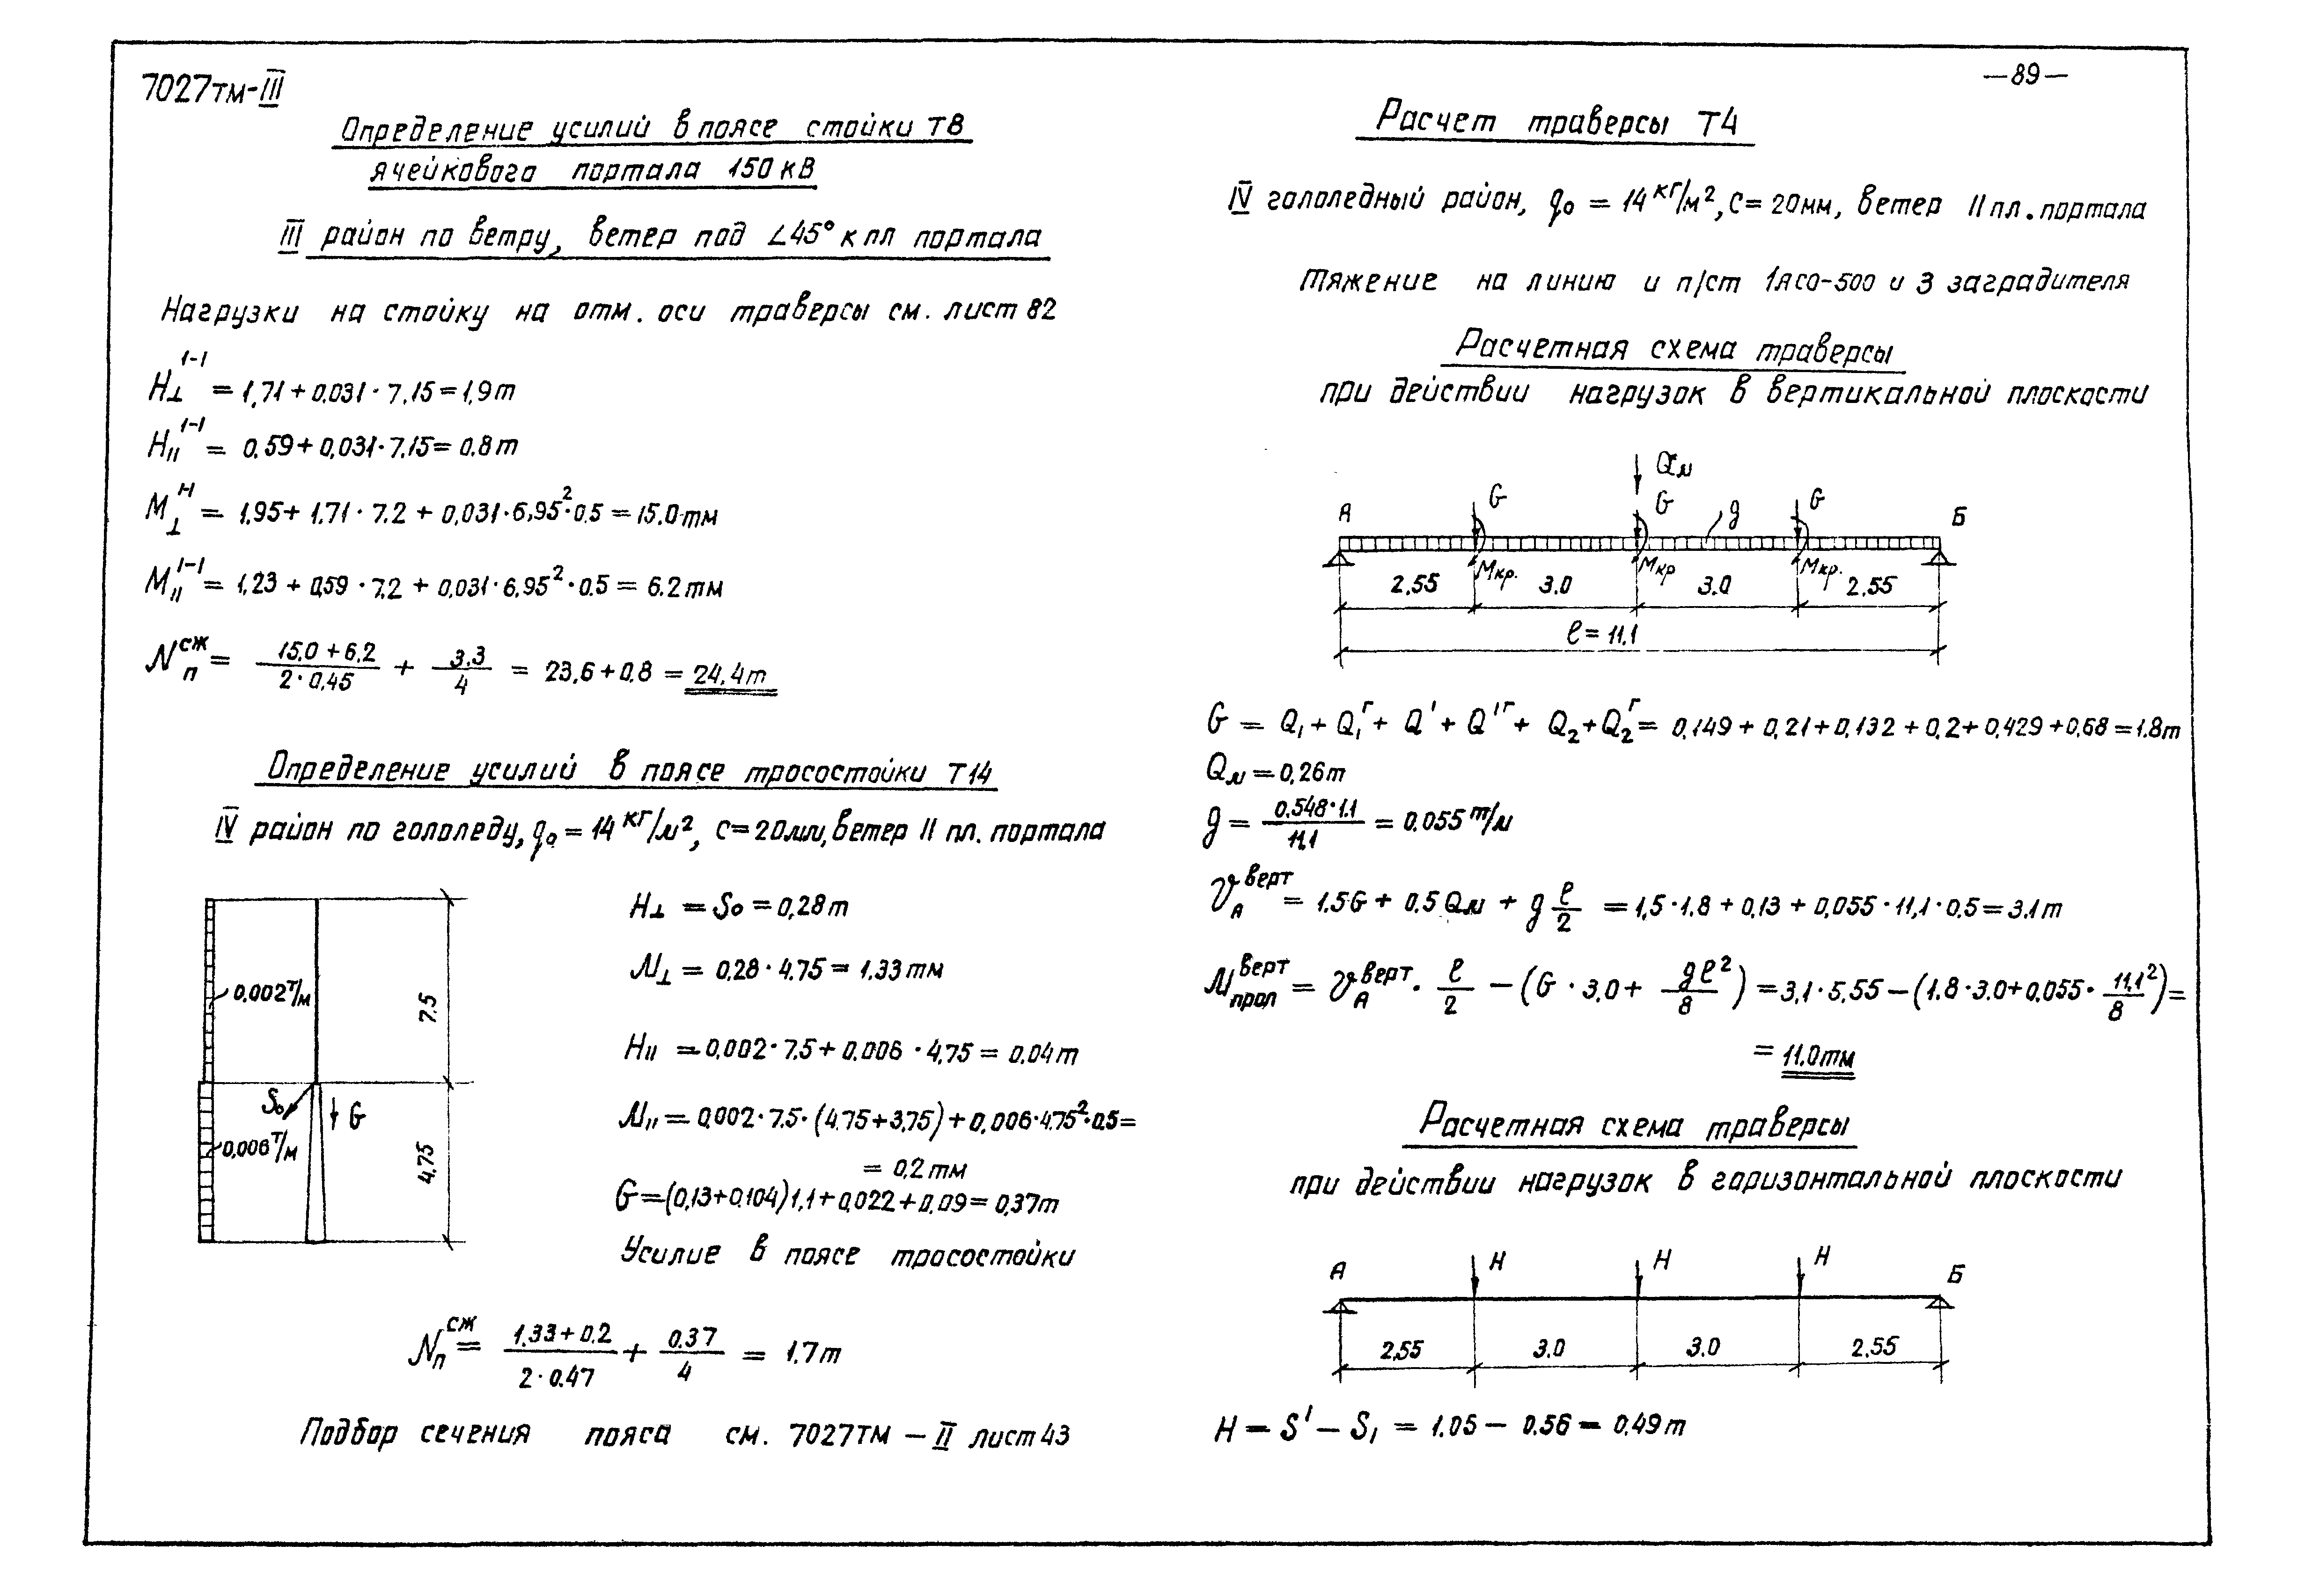 7027тм-III
Определение усилий в поясе стойки Т8
ячейкового портала 150 кВ
III район по ветру, ветер под ∠45° к пл портала
Нагрузки на стойку на отм. оси траверсы см. лист 82
H⊥¹⁻¹ = 1,71 + 0,031 · 7,15 = 1,9т
H||¹⁻¹ = 0,59 + 0,031 · 7,15 = 0,8т
M⊥¹⁻¹ = 1,95 + 1,71 · 7,2 + 0,031 · 6,95² · 0,5 = 15,0 тм
M||¹⁻¹ = 1,23 + 0,59 · 7,2 + 0,031 · 6,95² · 0.5 = 6.2тм
Nп^сж = (15,0 + 6,2)/(2 · 0,45) + 3,3/4 = 23,6 + 0,8 = 24,4т
Определение усилий в поясе тросостойки Т14
IV район по гололеду, q₀ = 14 кг/м², c = 20мм, ветер II пл. портала
0,002 т/м
7.5
S₀
G
0,006 т/м
4,75
H⊥ = S₀ = 0,28т
M⊥ = 0,28 · 4.75 = 1.33тм
H|| = 0,002 · 7.5 + 0.006 · 4,75 = 0.04т
M|| = 0,002 · 7.5 · (4.75 + 3,75) + 0,006 · 4.75² · 0.5 =
= 0,2тм
G = (0,13 + 0.104) 1,1 + 0,022 + 0,09 = 0,37т
Усилие в поясе тросостойки
Nп^сж = (1,33 + 0.2)/(2 · 0.47) + 0.37/4 = 1.7т
Подбор сечения пояса см. 7027ТМ – II лист 43
–89–
Расчет траверсы Т4
IV гололедный район, q₀ = 14 кг/м², c = 20мм, ветер II пл. портала
Тяжение на линию и п/ст 1ЯСО-500 и 3 заградителя
Расчетная схема траверсы
при действии нагрузок в вертикальной плоскости
Qм
G G G
А g Б
Мкр. Мкр Мкр.
2,55 3.0 3.0 2,55
ℓ = 11.1
G = Q₁ + Q₁^г + Q' + Q'^г + Q₂ + Q₂^г = 0,149 + 0,21 + 0,132 + 0,2 + 0,429 + 0,68 = 1.8т
Qм = 0,26т
g = (0.548 · 1.1)/11.1 = 0.055 т/м
V_A^верт = 1.5G + 0.5 Qм + g ℓ/2 = 1,5 · 1.8 + 0,13 + 0,055 · 11,1 · 0,5 = 3.1т
M_прол^верт = V_A^верт · ℓ/2 – (G · 3.0 + gℓ²/8) = 3,1 · 5.55 – (1.8 · 3.0 + 0.055 · 11,1²/8) =
= 11.0тм
Расчетная схема траверсы
при действии нагрузок в горизонтальной плоскости
А H H H Б
2,55 3.0 3.0 2,55
H = S' – S₁ = 1.05 – 0.56 = 0,49т